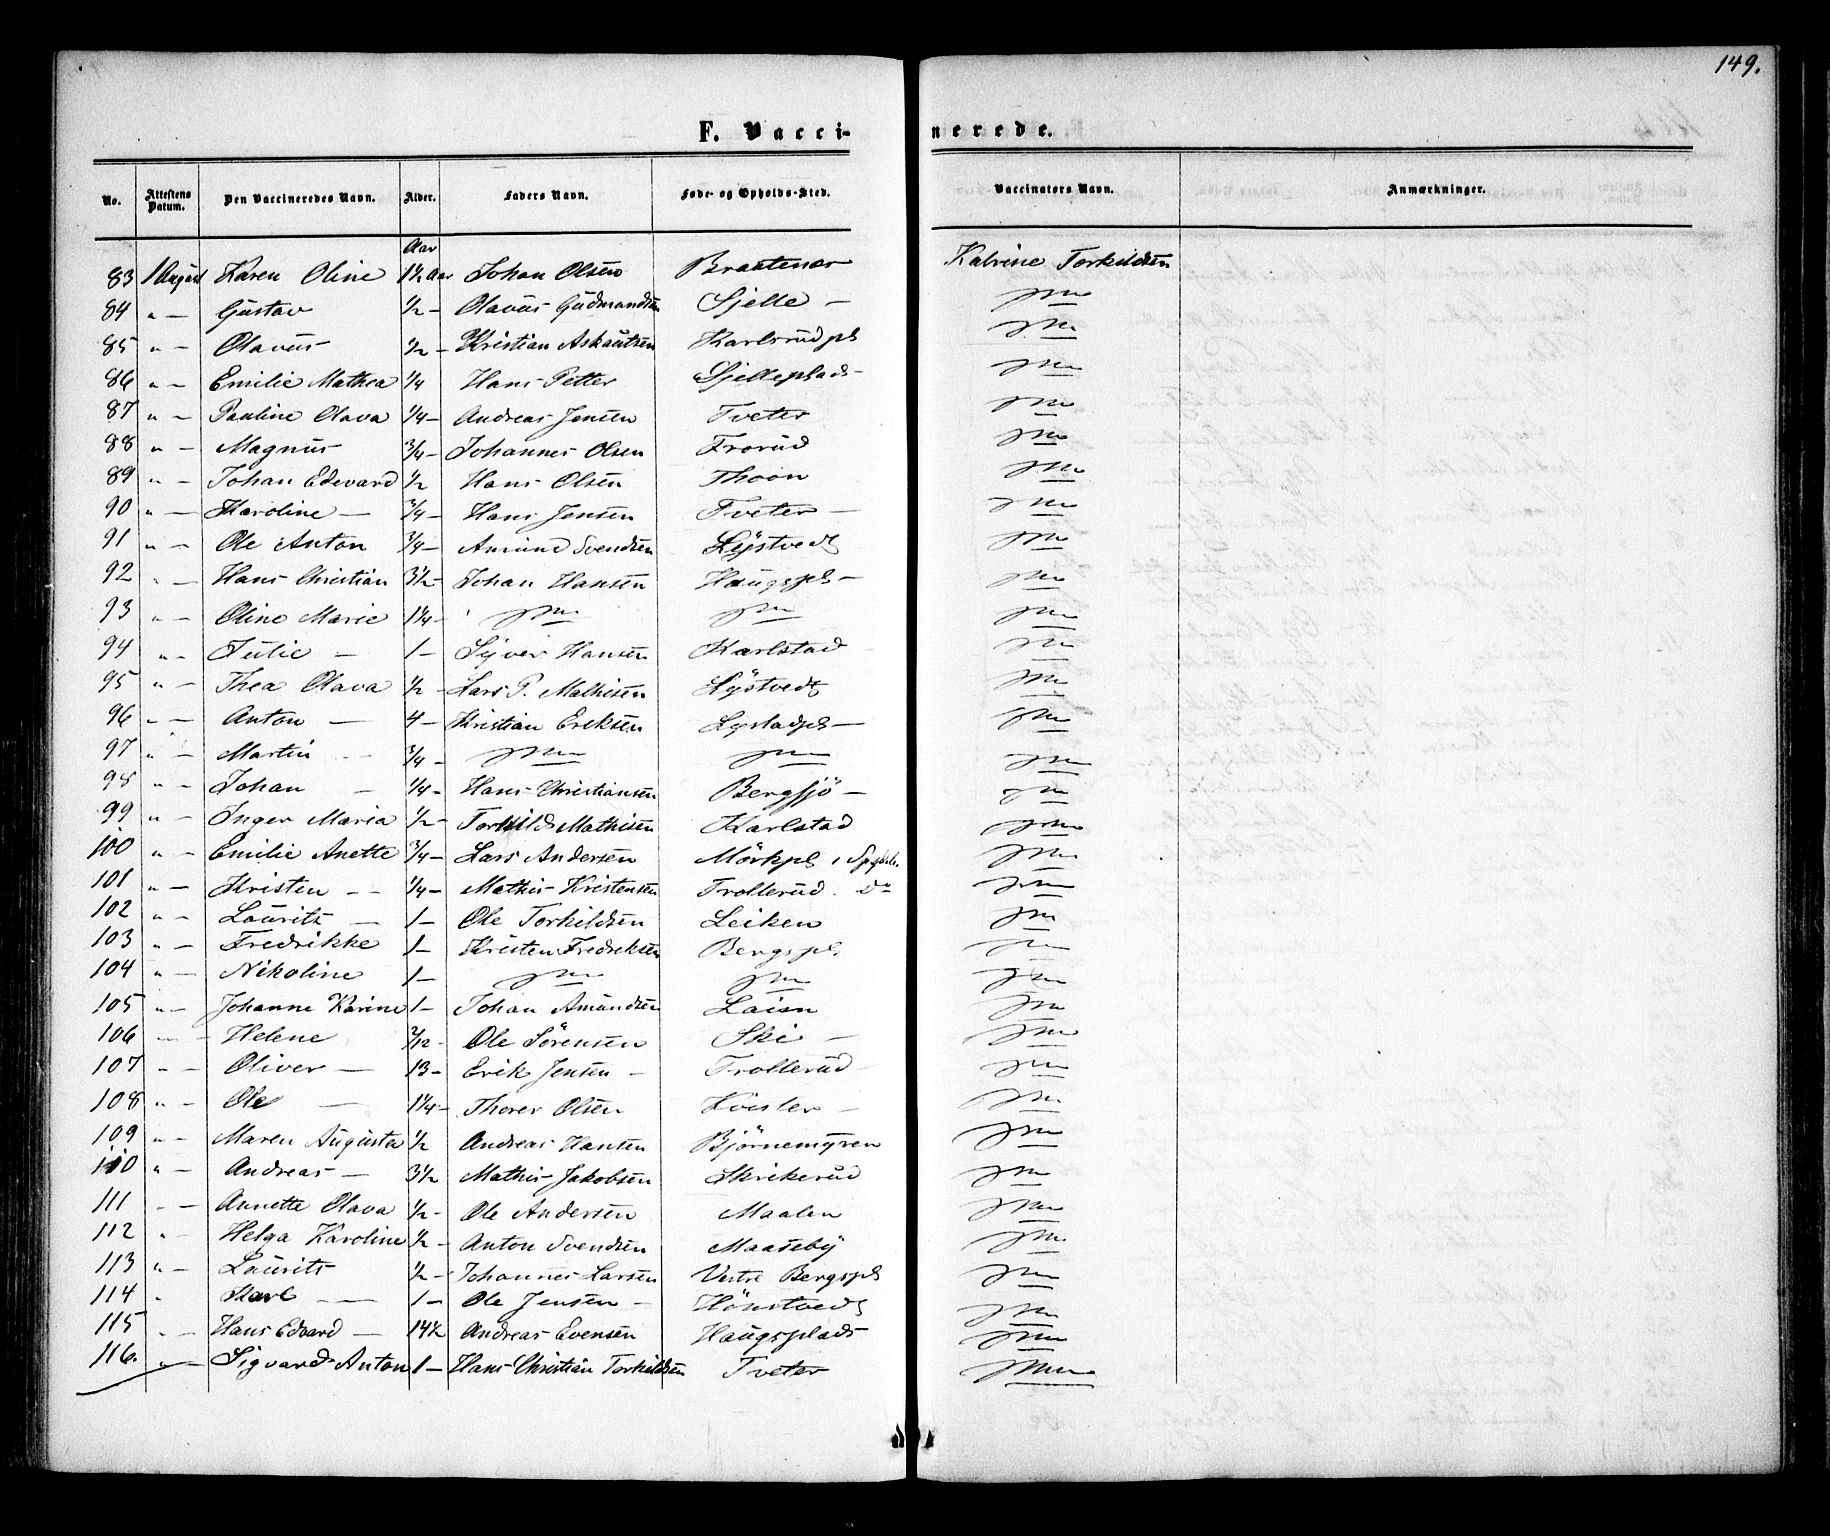 149.
F. Vaccinerede.
No. Attestens Datum. Den Vaccineredes Navn. Alder. Faders Navn. Føde- og Opholds-Sted. Vaccinators Navn. Anmærkninger.
Aar
83 1 August Karen Oline 1½ Aar Johan Olsen Braatenær Katrine Torkildsen
84 " — Gustav ½ — Olavus Gudmandsen Sjelle —
85 " — Olavus ½ — Kristian Askautsen Karlsrudpls
86 " — Emilie Mathea ¼ Hans Petter Sjelleplads
87 " — Pauline Olava ¼ — Andreas Jensen Tveter
88 " — Magnus ¾ — Johannes Olsen Frorud
89 " — Johan Edevard ½ Hans Olsen Thoon
90 " — Karoline — ¾ — Hans Jensen Tveter —
91 " — Ole Anton ¾ — Amund Svendsen Lystvedt
92 " — Hans Christian 3½ — Johan Hansen Haugspls —
93 " — Oline Marie 1¼ —
94 " — Julie — 1 — Syver Hansen Karlstad
95 " — Thea Olava ½ — Lars P. Mathisen Lystvedt
96 " — Anton — 4 — Kristian Eriksen Lystadpls —
97 " — Martin ¾ —
98 " — Johan — ¼ — Hans Christiansen Bergsjö —
99 " — Inger Maria ½ — Torkild Mathisen Karlstad
100 " — Emilie Anette ¾ — Lars Andersen Mörkpls i Spydeb.
101 " — Kristen — ¼ — Mathis Kristensen Trollerud Do
102 " — Laurits — 1 — Ole Torkildsen Leiken
103 " — Fredrikke 1 — Kristen Fredriksen Bergspls.
104 " — Nikoline 1 —
105 " — Johanne Karine 1 — Johan Amundsen Laisn
106 " — Helene 2/12 — Ole Sörensen Ski —
107 " — Oliver — 13 — Erik Jensen — Trollerud
108 " — Ole — 1¼ — Thorer Olsen Kvister —
109 " — Maren Augusta ½ Andreas Hansen Björnemyren
110 " — Andreas — 3½ Mathis Jakobsen Skrikerud
111 " — Annette Olava ½ — Ole Andersen Maalen
112 " — Helga Karoline ½ — Anton Svendsen Maaseby
113 " — Laurits ½ — Johannes Larsen Vestre Bergspls
114 " Karl — 1 — Ole Jensen — Hönstvedt
115 " — Hans Edvard — 14½ Andreas Evensen Haugsplads
116. " — Sigvard Anton 1 — Hans Christian Torkildsen Tveter